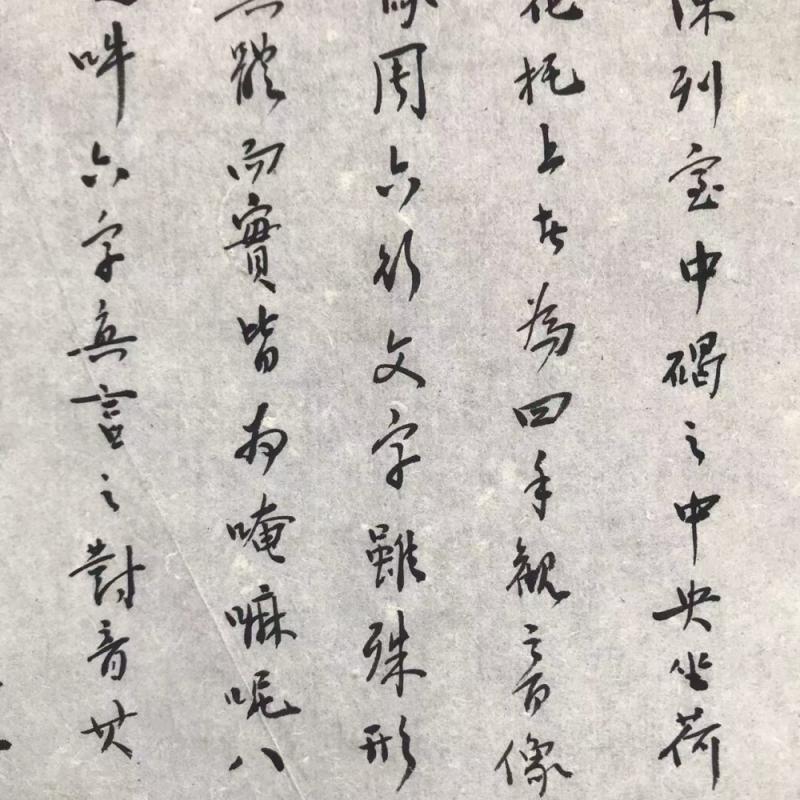 陳列室中碣之中央坐荷
花托上者為四手觀音像
像周六行文字雖殊形
異體而實皆為唵嘛呢八
吽六字真言之對音其